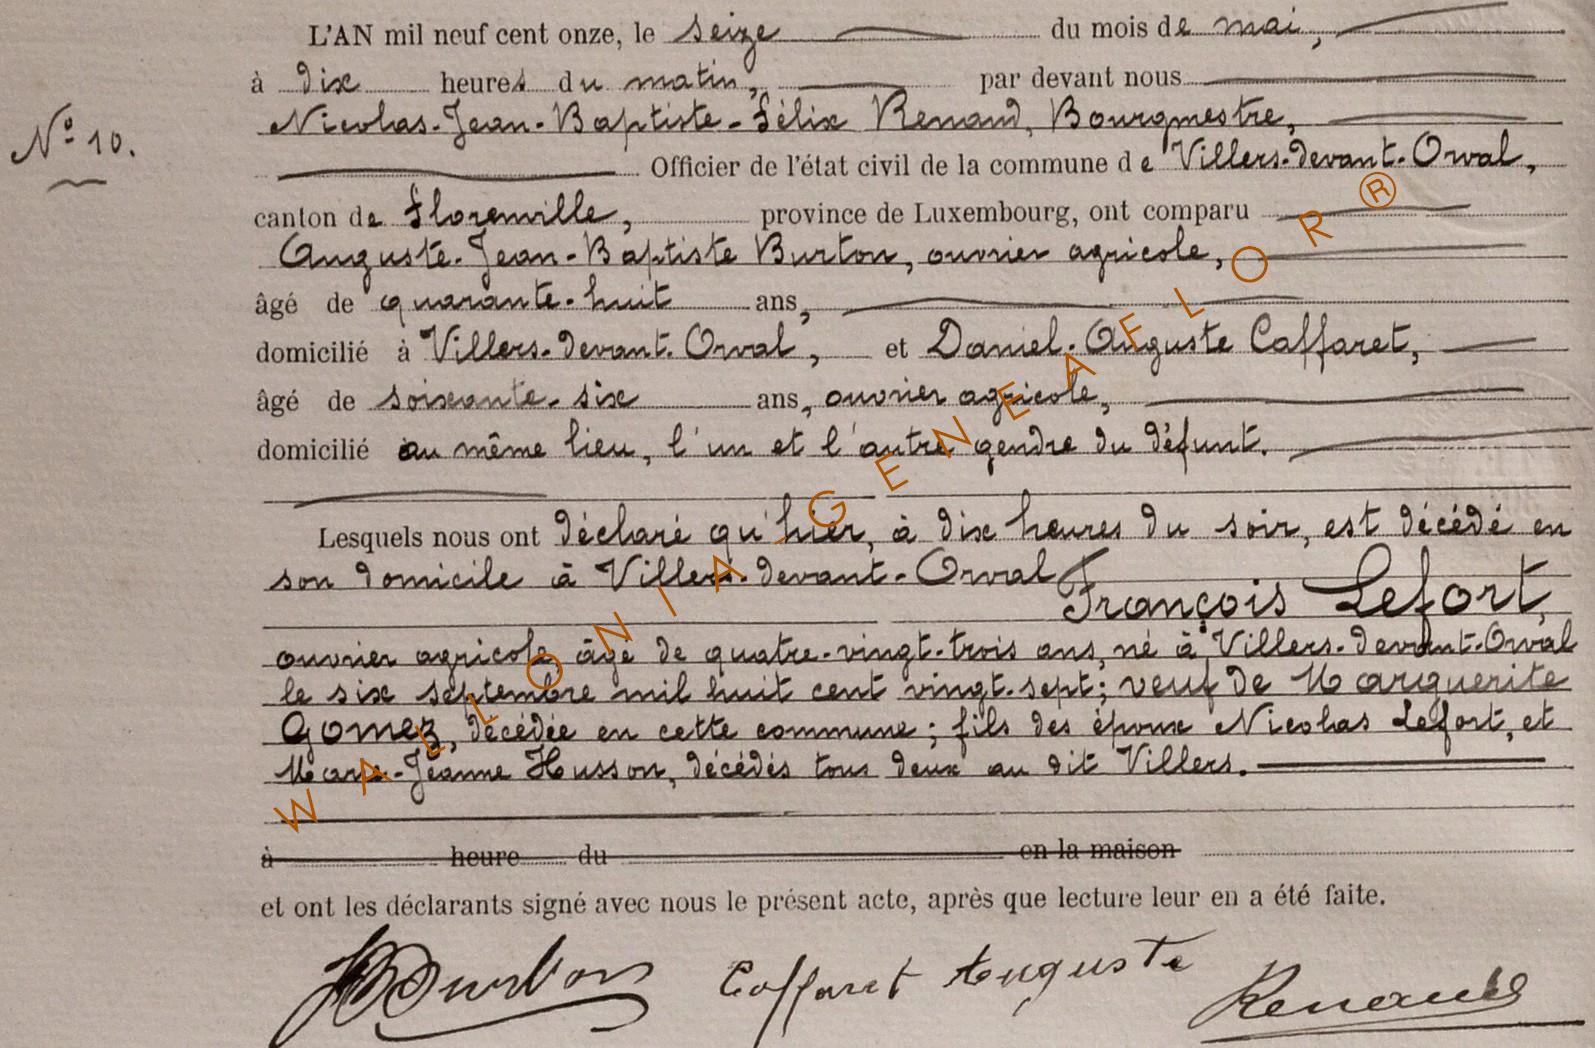 L'AN mil neuf cent onze, le seize du mois de mai,
à dix heures du matin, par devant nous
Nicolas-Jean-Baptiste-Félix Renaud, Bourgmestre,
N° 10.
Officier de l'état civil de la commune de Villers-devant-Orval,
canton de Florenville, province de Luxembourg, ont comparu
Auguste-Jean-Baptiste Burton, ouvrier agricole,
âgé de quarante-huit ans,
domicilié à Villers-devant-Orval, et Daniel-Auguste Caffaret,
âgé de soixante-six ans, ouvrier agricole,
domicilié au même lieu, l'un et l'autre gendre du défunt.
Lesquels nous ont déclaré qu'hier, à dix heures du soir, est décédé en
son domicile à Villers-devant-Orval
François Lefort,
ouvrier agricole, âgé de quatre-vingt-trois ans, né à Villers-devant-Orval
le six septembre mil huit cent vingt-sept; veuf de Marguerite
Gomez, décédée en cette commune; fils des époux Nicolas Lefort, et
Marie-Jeanne Husson, décédés tous deux au dit Villers.
à heure du en la maison
et ont les déclarants signé avec nous le présent acte, après que lecture leur en a été faite.
Burton Caffaret Auguste Renaud
WALLONIA GENEAFLOR ®